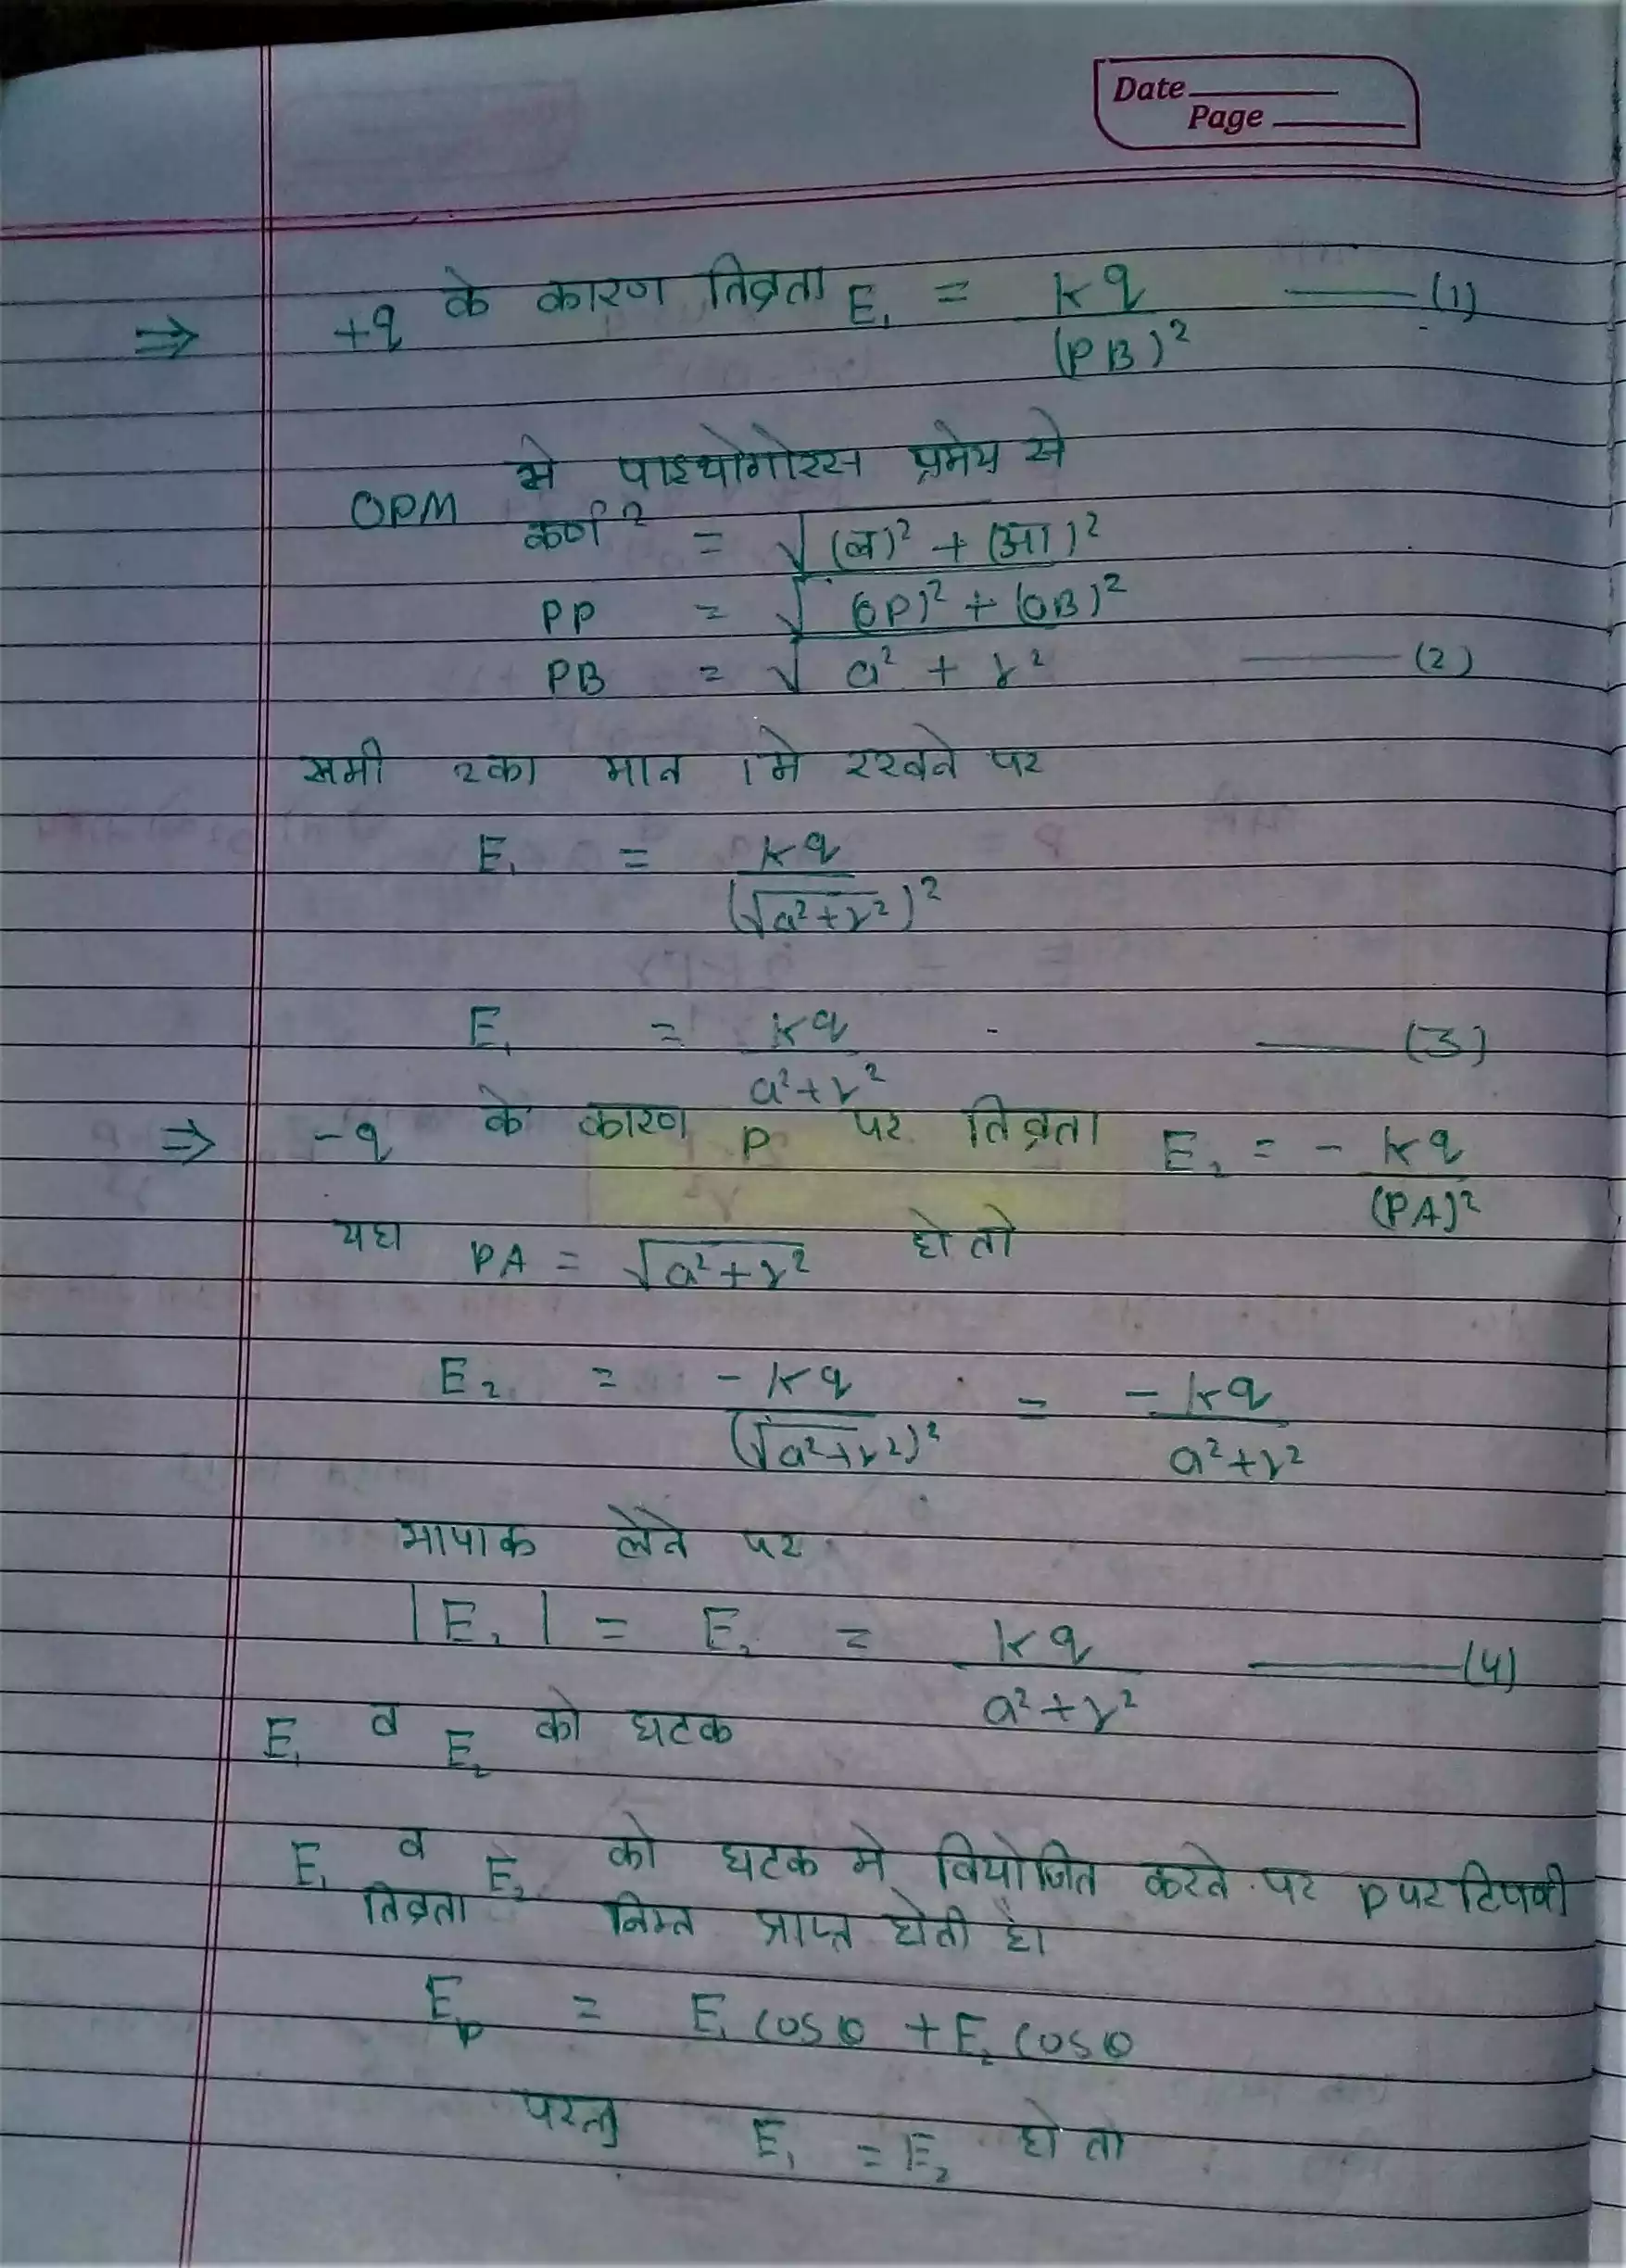 Date
Page
⇒ +q के कारण तिव्रता E₁ = kq / (PB)² —— (1)
OPM मे पाइथोगोरस प्रमेय से
कर्ण² = √(ल)² + (आ)²
PP = √(OP)² + (OB)²
PB = √a² + r² —— (2)
समी 2का मान 1मे रखने पर
E₁ = kq / (√a²+r²)²
E₁ = kq / a²+r² —— (3)
⇒ -q के कारण P पर तिव्रता E₂ = - kq / (PA)²
यहा PA = √a²+r² हो तो
E₂ = -kq / (√a²+r²)² = -kq / a²+r²
मापाक लेने पर
|E₂| = E₂ = kq / a²+r² —— (4)
E₁ व E₂ को घटक
E₁ व E₂ को घटक मे वियोजित करने पर P पर
तिव्रता निम्न प्राप्त होती है।
Ep = E₁ cosθ + E₂ cosθ
परन्तु E₁ = E₂ हो तो